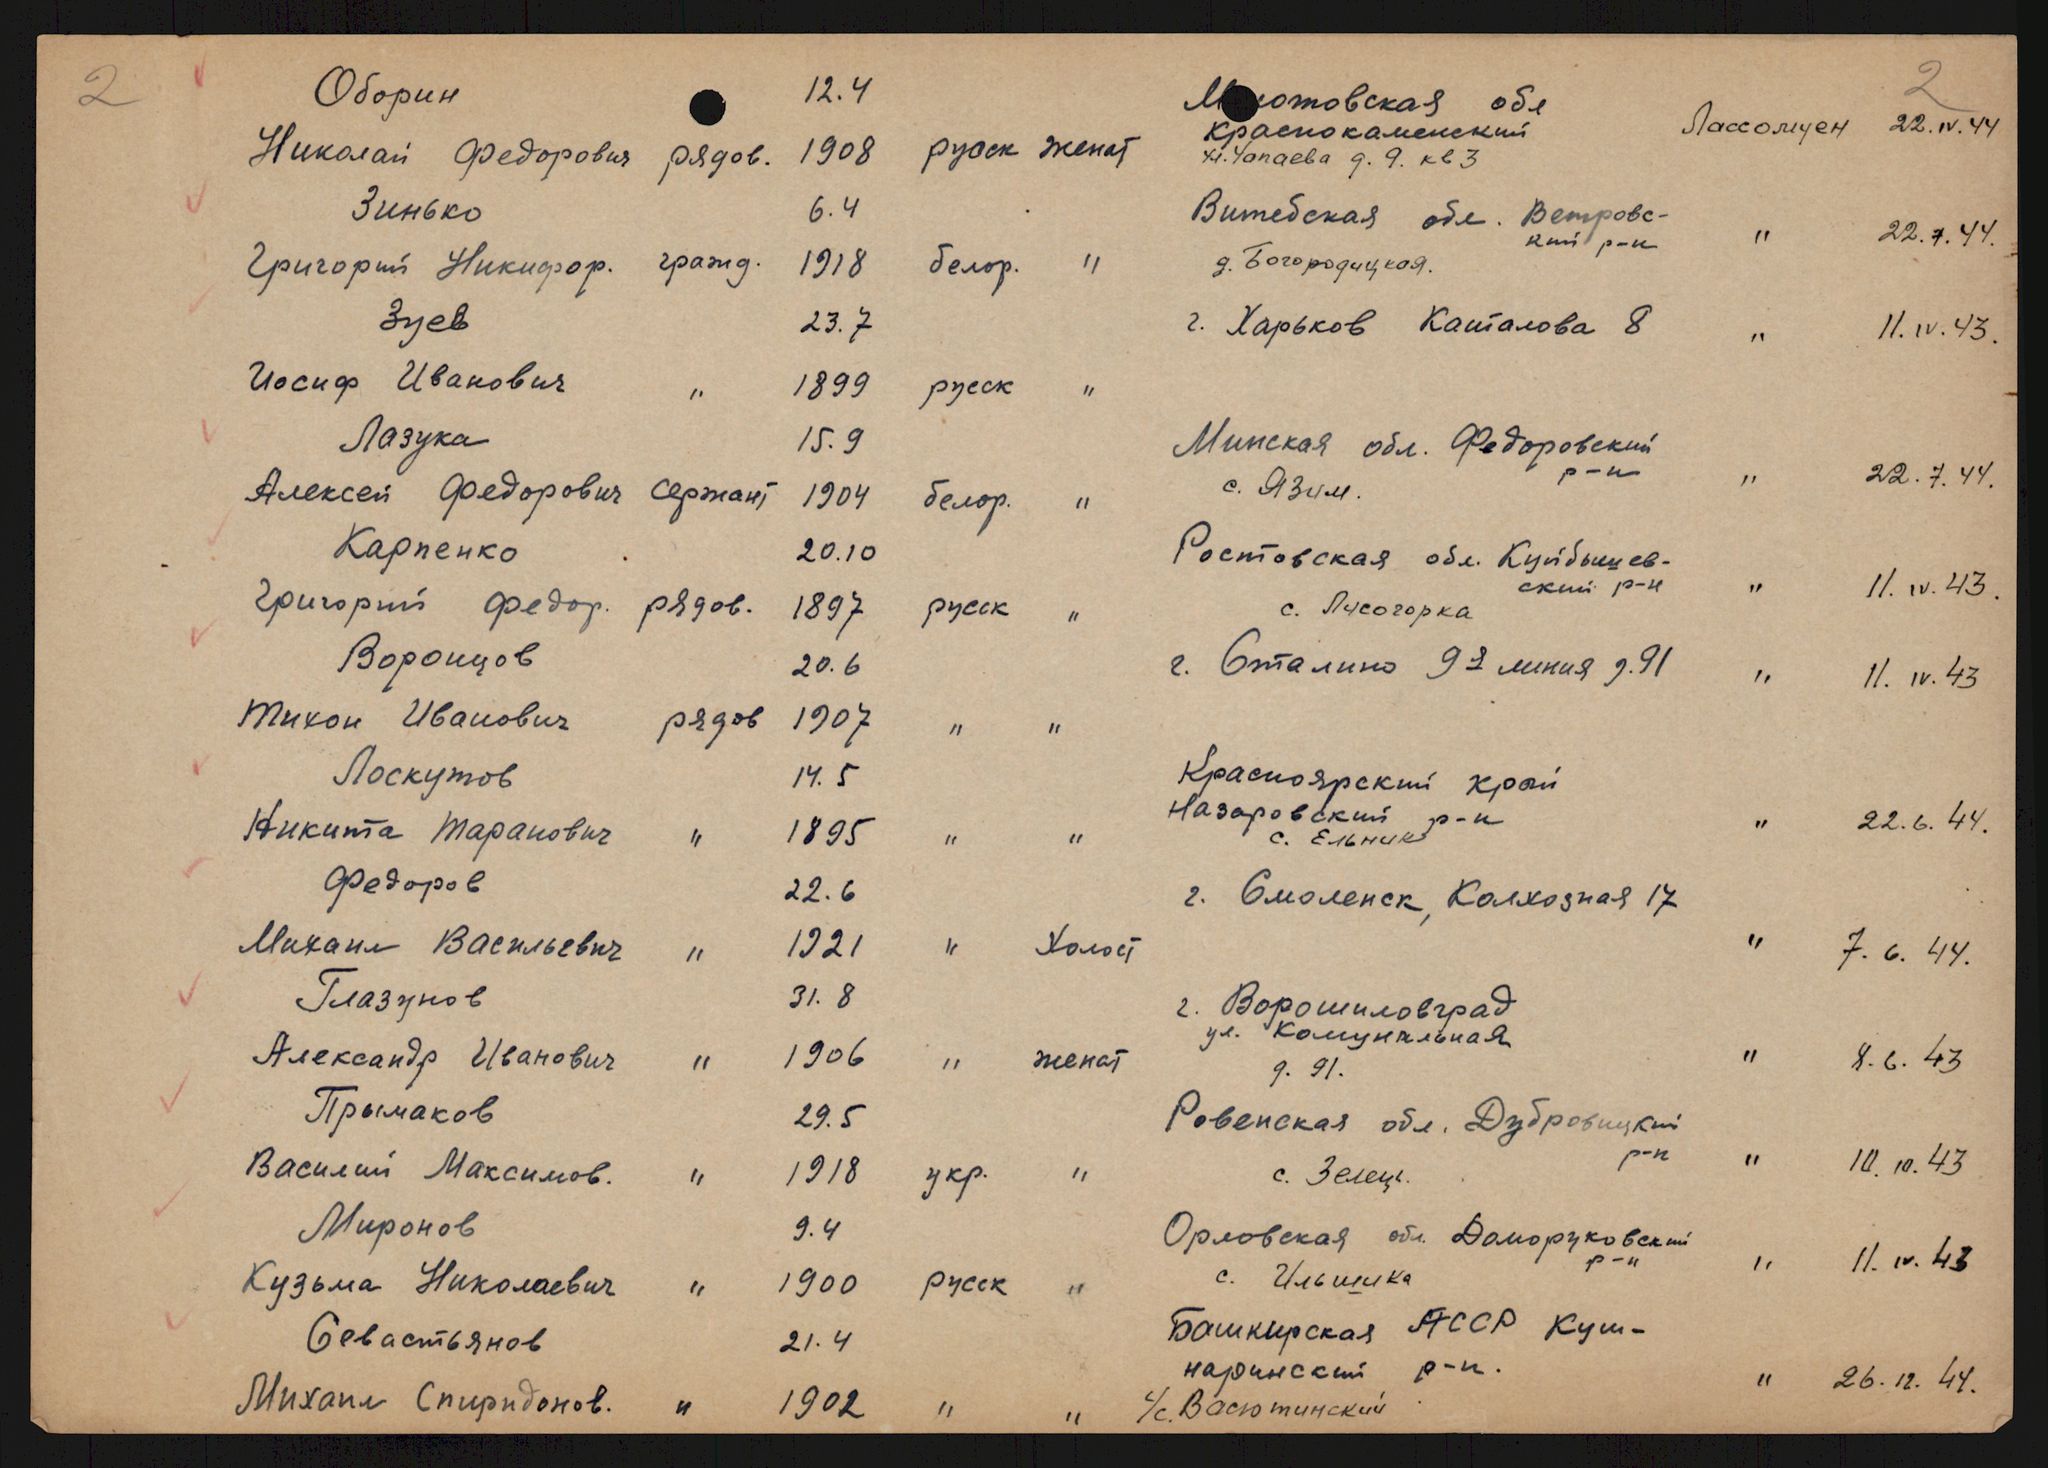 2 2
Оборин 12.4 обл
Николай Федорович рядов. 1908 русск женат Краснокаменский Лассомуен 22.IV.44
ул. Чапаева д. 9. кв 3
Зинько 6.4 Витебская обл. Ветровс-
кий р-н " 22.7.44.
Григорий Никифор. гражд. 1918 белор. " д. Богородицкая.
Зуев 23.7 г. Харьков Каталова 8 " 11.IV.43.
Иосиф Иванович " 1899 русск "
Лазука 15.9 Минская обл. Федоровский
р-н " 22.7.44.
Алексей Федорович сержант 1904 белор. " с. Язим.
Карпенко 20.10 Ростовская обл. Куйбышев-
ский р-н " 11.IV.43.
Григорий Федор. рядов. 1897 русск " с. Лысогорка
Воронцов 20.6 г. Сталино 9я линия д.91 " 11.IV.43
Тихон Иванович рядов 1907 " "
Лоскутов 14.5 Красноярский край
Никита Таранович " 1895 " " Назаровский р-н " 22.6.44.
с. Ельник
Федоров 22.6 г. Смоленск, Колхозная 17
Михаил Васильевич " 1921 " Холост " 7.6.44.
Глазунов 31.8 г. Ворошиловград
ул. Комунальная
Александр Иванович " 1906 " женат д. 91. " 8.6.43
Прымаков 29.5 Ровенская обл. Дубровицкий
р-н " 10.10.43
Василий Максимов. " 1918 укр. " с. Зелец.
Миронов 9.4 Орловская обл. Даморуковский
р-н " 11.IV.43
Кузьма Николаевич " 1900 русск " с. Ильшика
Севастьянов 21.4 Башкирская АССР Куш-
наринский р-н. " 26.12.44.
Михаил Спиридонов. " 1902 " " с/с. Васютинский